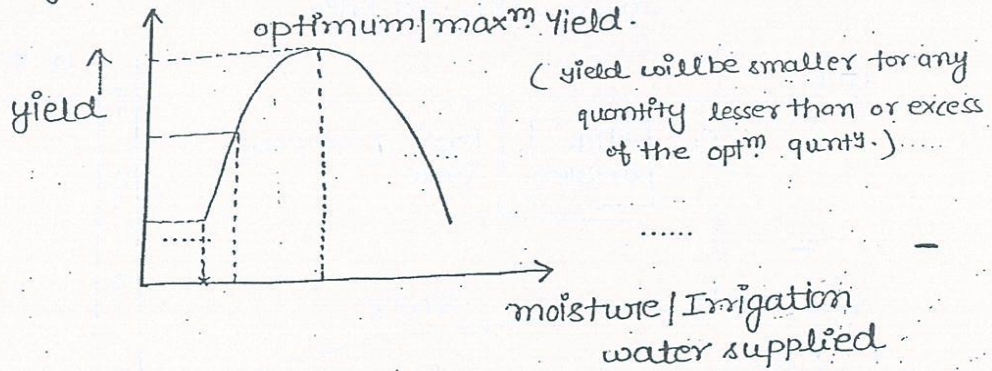 optimum/maxᵐ Yield.
(yield will be smaller for any
quantity lesser than or excess
of the optᵐ quntʸ.).....
yield
moisture/Irrigation
water supplied